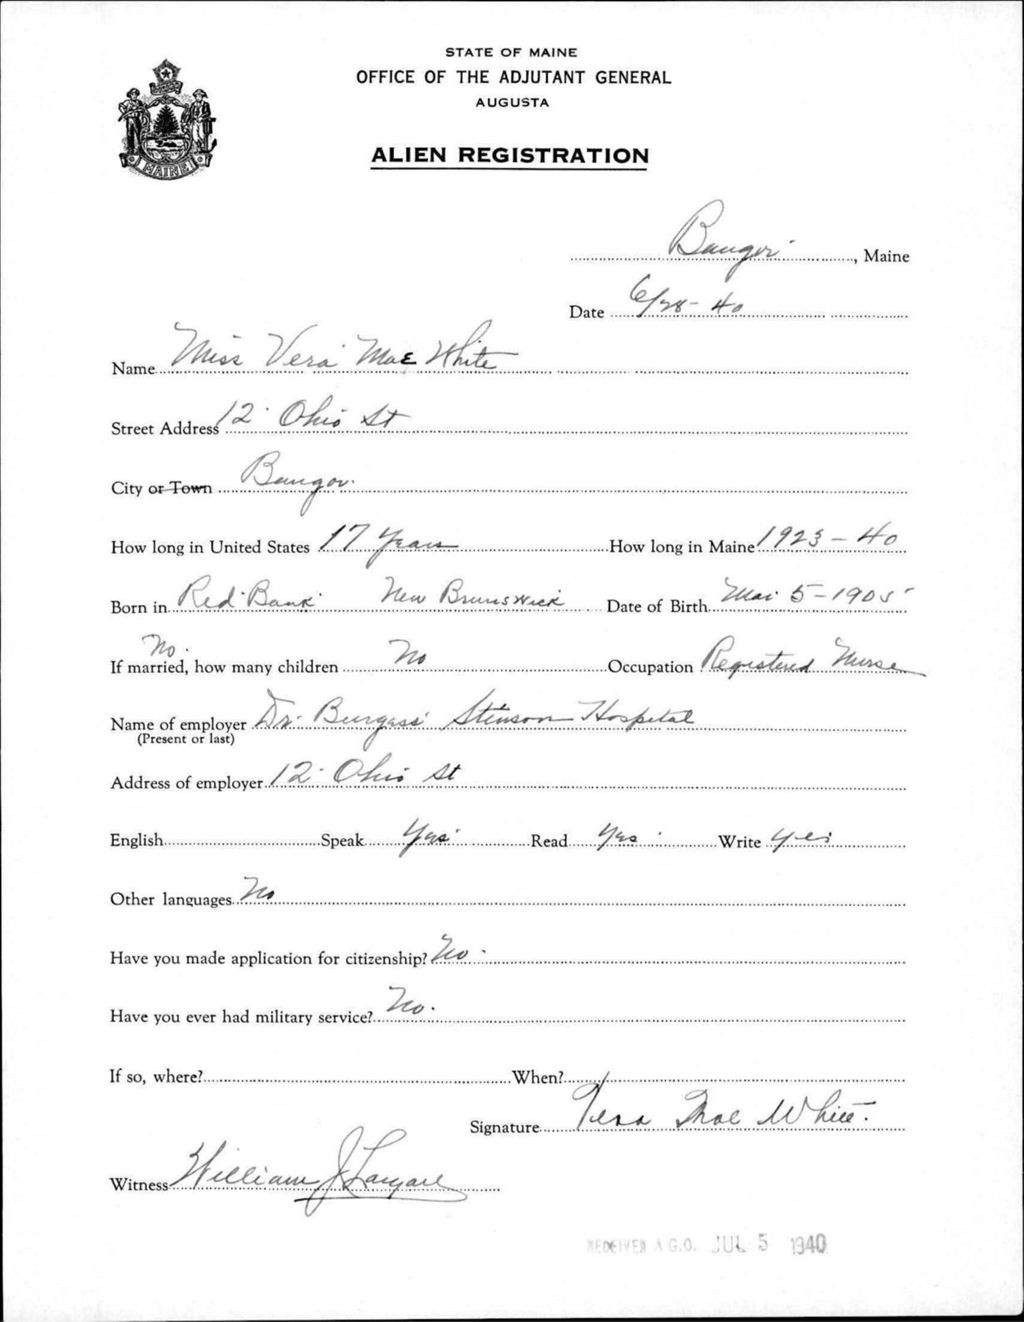 STATE OF MAINE
OFFICE OF THE ADJUTANT GENERAL
AUGUSTA
ALIEN REGISTRATION
MAINE
Bangor, Maine
Date 6/28-40
Name Miss Vera Mae White
Street Address 12 Ohio St
City or Town Bangor
How long in United States 17 Years How long in Maine 1923-40
Born in Red Bank New Brunswick Date of Birth Mar 5-1905
No.
If married, how many children No Occupation Registered Nurse
Name of employer Dr. Burgess Stinson Hospital
(Present or last)
Address of employer 12 Ohio St
English Speak Yes Read Yes Write yes
Other languages No
Have you made application for citizenship? No
Have you ever had military service? No.
If so, where? When?
Signature Vera Mae White.
Witness William J
RECEIVED A.G.O. JUL 5 1940